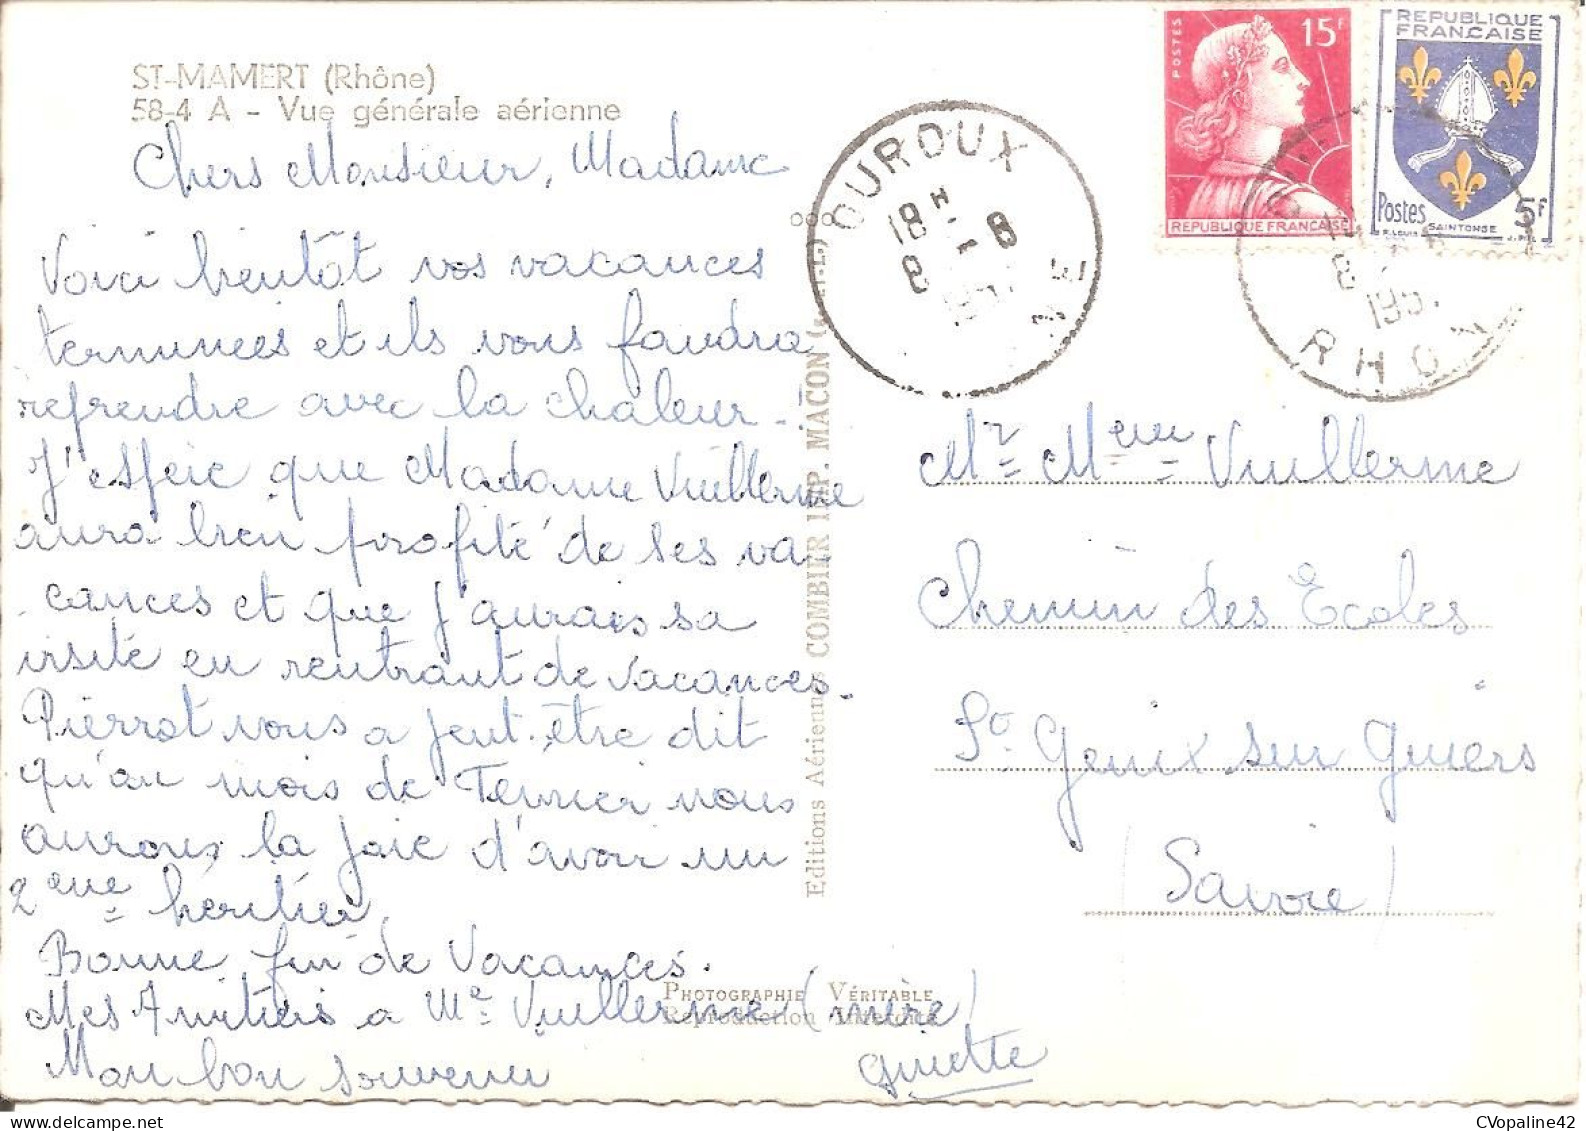 ST-MAMERT (Rhône)
58-4 A - Vue générale aérienne
Chers Monsieur, Madame
Voici bientôt vos vacances
terminées et ils vous faudra
reprendre avec la chaleur-!
J'espère que Madame Vuillerme
aura bien profité de ses va-
cances et que j'aurais sa
visite en rentrant de vacances.
Pierrot vous a peut-être dit
qu'au mois de Février nous
aurons la joie d'avoir un
2eme héritier.
Bonne fin de Vacances.
Mes Amitiés a Me Vuillerme (mère)
Mon bon souvenir
Ginette
Editions Aériennes COMBIER IMP. MACON
PHOTOGRAPHIE VÉRITABLE
Reproduction Interdite
OUROUX
18H 8-8
RHONE
POSTES
15F
REPUBLIQUE FRANÇAISE
REPUBLIQUE
FRANÇAISE
Postes 5F
SAINTONGE
Mr Meme Vuillerme
Chemin des Ecoles
St Genix sur Guiers
(Savoie)
CVopaline42